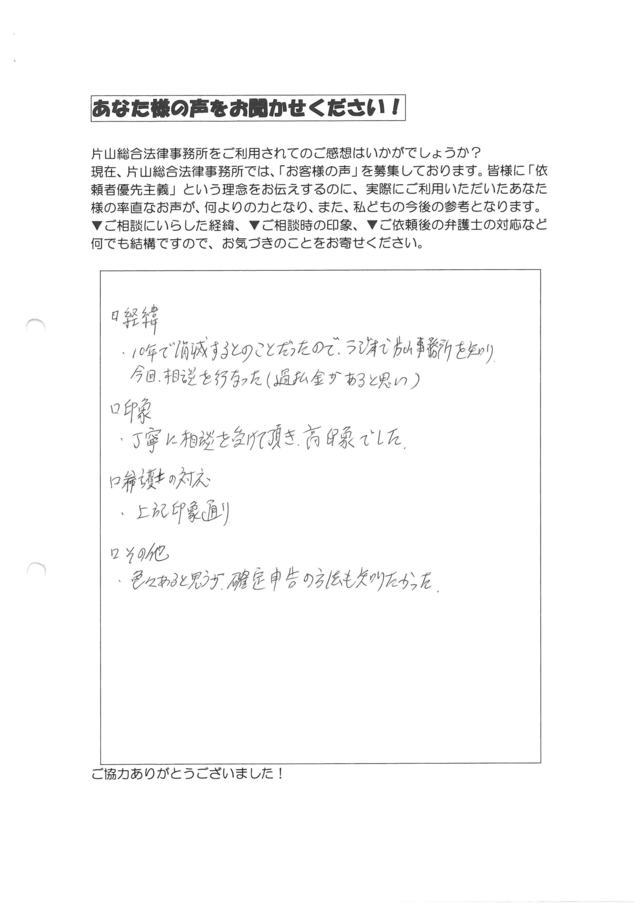 あなた様の声をお聞かせください！
片山総合法律事務所をご利用されてのご感想はいかがでしょうか？
現在、片山総合法律事務所では、「お客様の声」を募集しております。皆様に「依
頼者優先主義」という理念をお伝えするのに、実際にご利用いただいたあなた
様の率直なお声が、何よりの力となり、また、私どもの今後の参考となります。
▼ご相談にいらした経緯、▼ご相談時の印象、▼ご依頼後の弁護士の対応など
何でも結構ですので、お気づきのことをお寄せください。
□経緯
・10年で消滅するとのことだったので、ラジオで片山事務所を知り
今回、相談を行なった（過払金があると思い）
□印象
・丁寧に相談を受けて頂き、高印象でした。
□弁護士の対応
・上記印象通り
□その他
・色々あると思うが、確定申告の方法も知りたかった。
ご協力ありがとうございました！